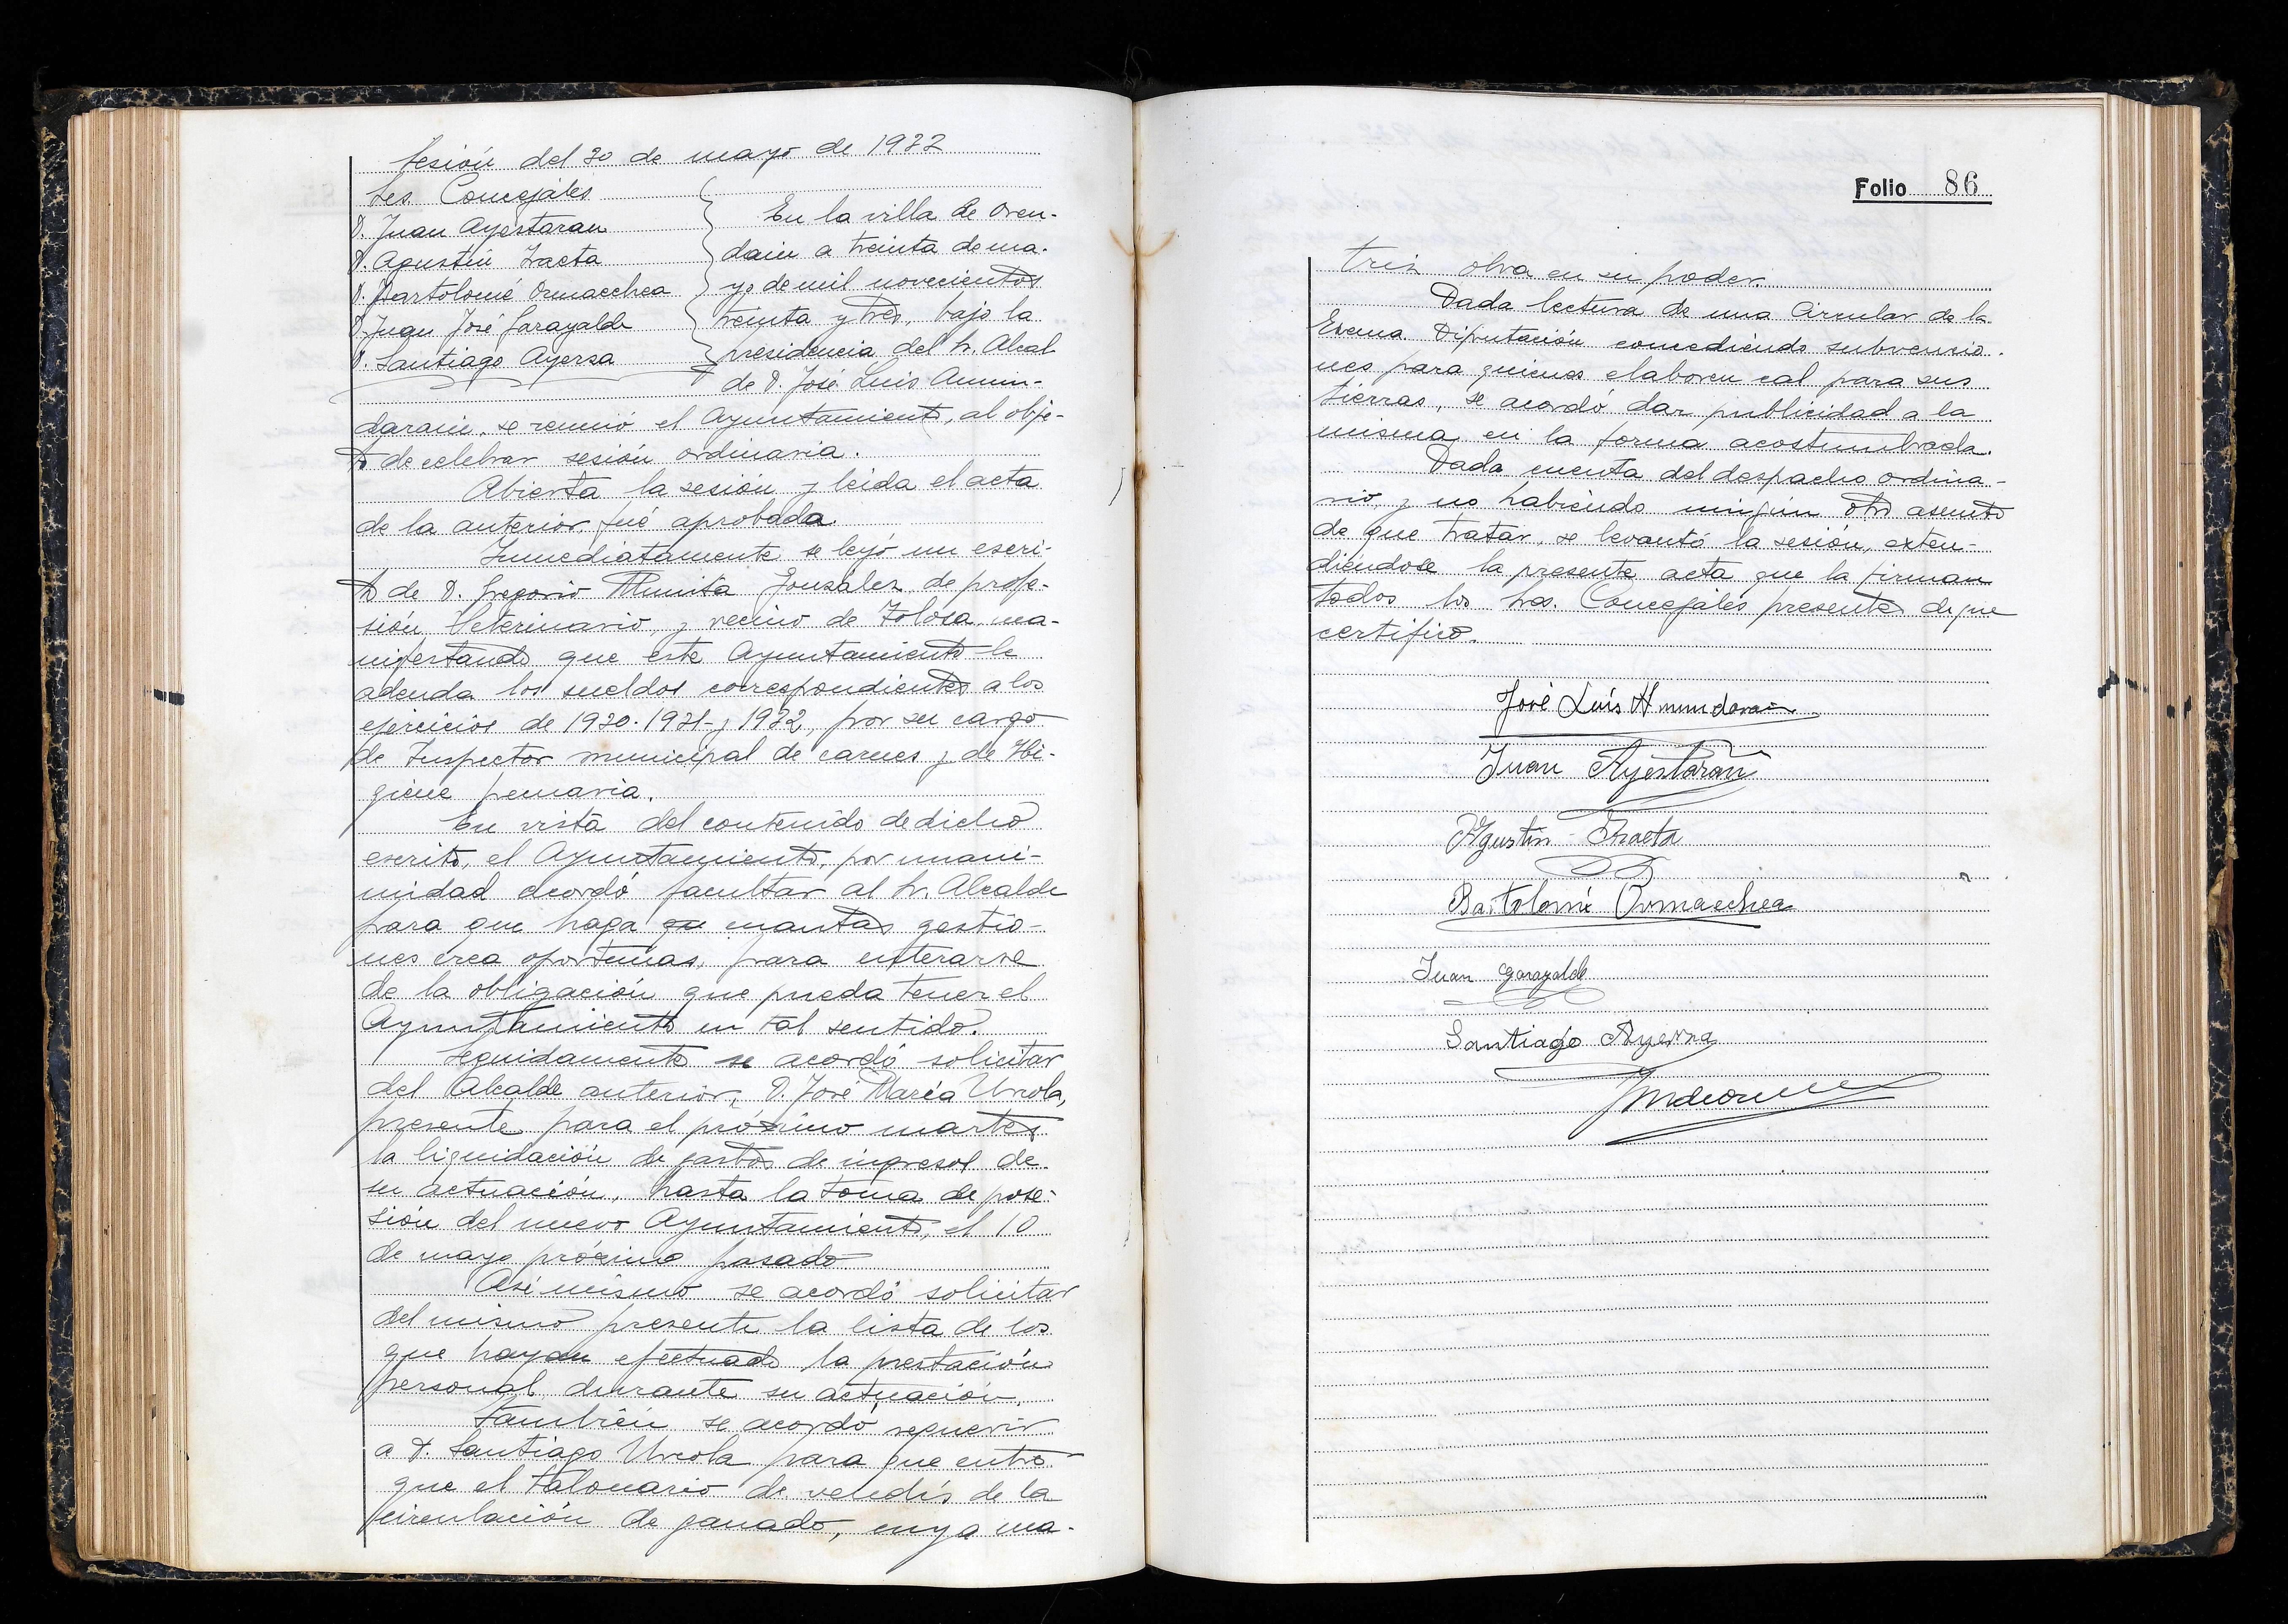 Sesión del 30 de mayo de 1933
Sres. Concejales
D. Juan Ayestaran
D. Agustín Iraeta
D. Bartolomé Ormaechea
D. Juan José Garayalde
D. Santiago Ayerza
En la villa de Oren-
dain a treinta de ma-
yo de mil novecientos
treinta y tres, bajo la
presidencia del Sr. Alcal
de D. José Luis Amun-
darain, se reunió el Ayuntamiento, al obje-
to de celebrar sesión ordinaria.
Abierta la sesión y leida el acta
de la anterior fué aprobada.
Inmediatamente se leyó un escri-
to de D. Gregorio Munita González, de profe-
sión Veterinario, y vecino de Tolosa, ma-
nifestando que este Ayuntamiento le
adeuda los sueldos correspondientes a los
ejercicios de 1930-1931-y 1932, por su cargo
de Inspector municipal de carnes y de Hi-
giene pecuaria.
En vista del contenido de dicho
escrito, el Ayuntamiento, por unani-
midad acordó facultar al Sr. Alcalde
para que haga cuantas gestio-
nes crea oportunas, para enterarse
de la obligación que pueda tener el
Ayuntamiento en tal sentido.
Seguidamente se acordó solicitar
del Alcalde anterior, D. José María Urrola,
presente para el próximo martes
la liquidación de gastos de ingresos de
su actuación, hasta la toma de pose-
sión del nuevo Ayuntamiento, el 10
de mayo próximo pasado
Asi mismo se acordó solicitar
del mismo presente la lista de los
que hayan efectuado la prestación
personal durante su actuación.
También se acordó requerir
a D. Santiago Urrola para que entre-
gue el talonario de vendís de la
circulación de ganado, cuya ma-
Folio 86
triz obra en su poder.
Dada lectura de una Circular de la
Excma. Diputación concediendo subvencio-
nes para quienes elaboren cal para sus
tierras, se acordó dar publicidad a la
misma en la forma acostumbrada.
Dada cuenta del despacho ordina-
rio, y no habiendo ningún otro asunto
de que tratar, se levantó la sesión, exten-
diéndose la presente acta que la firman
todos los Sres. Concejales presentes de que
certifico.
José Luis Amundarain
Juan Ayestarán
Agustin Iraeta
Bartolomé Ormaechea
Juan Garayalde
Santiago Ayerza